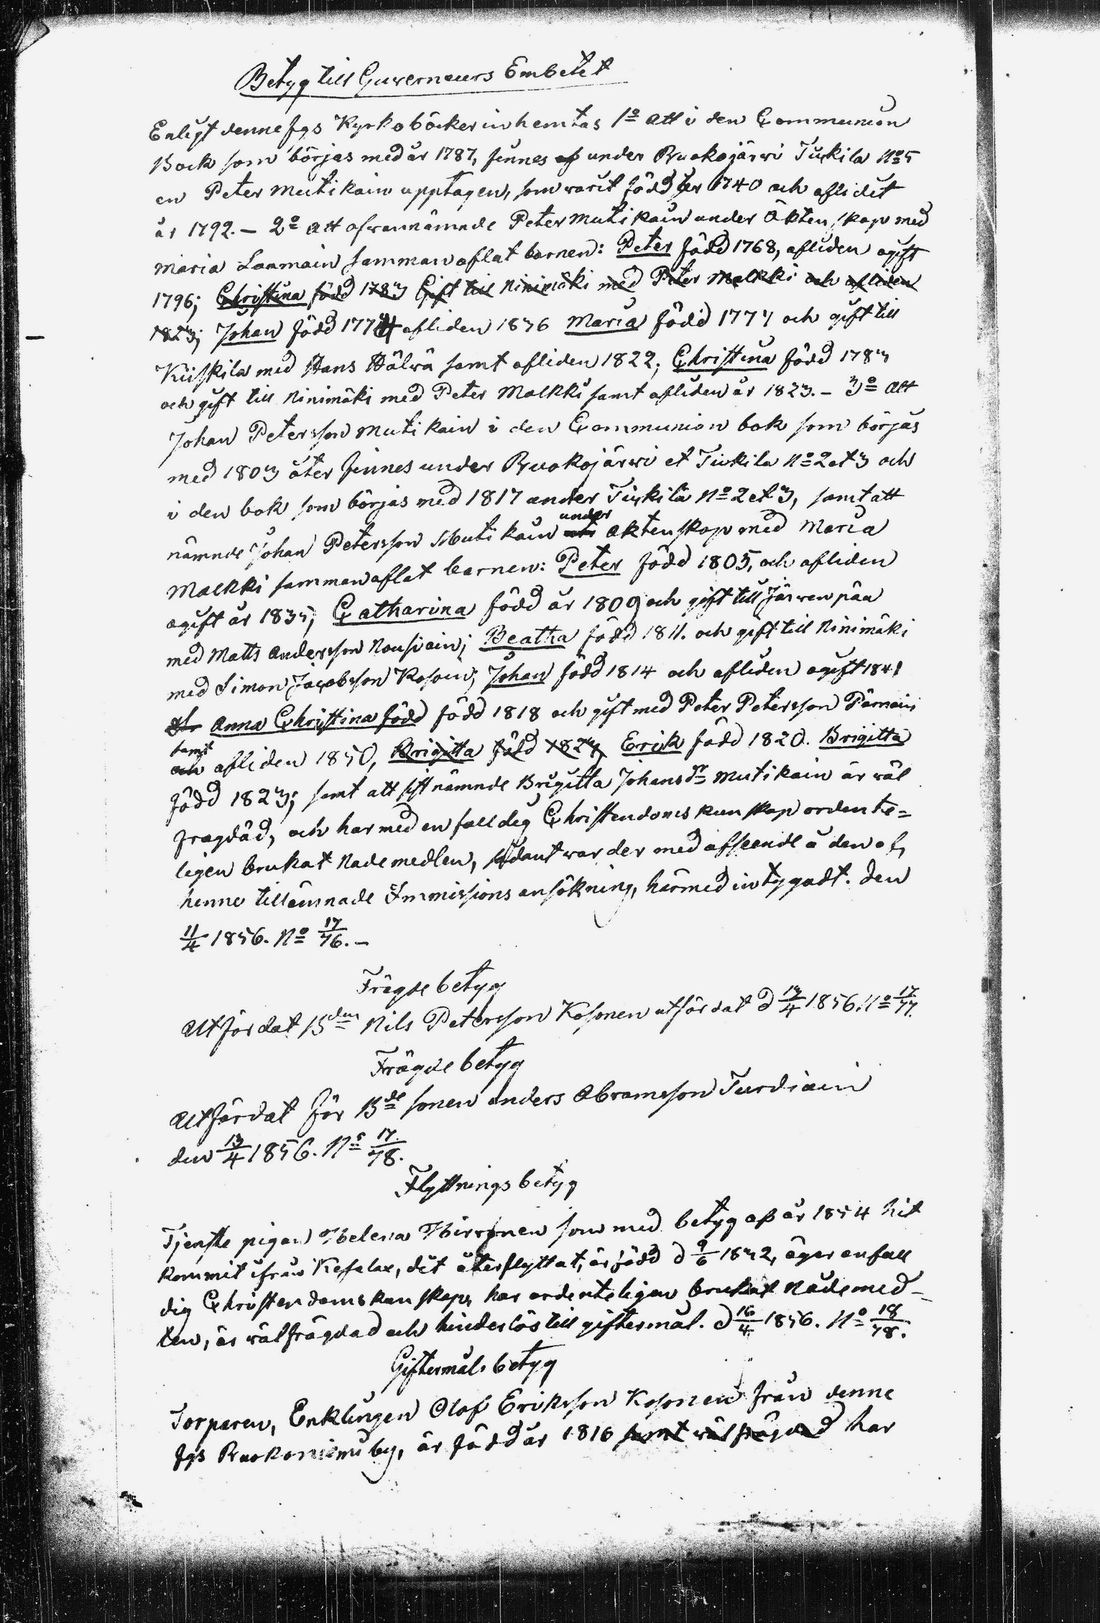 Betyg till Guverneurs Embetet
Enligt denne fgs Kyrkoböcker inhemtas 1o att i den Communion
Bock som börjas med år 1787, finnes under Ruokojärwi Tiukila No 5
en Peter Mutikain upptagen, som varit född år 1740 och aflidet
år 1792. – 2o att ofvannämnde Peter Mutikain under Äktenskap med
Maria Laamain sammanaflat barnen: Peter född 1768, afliden ogift
1796; Christina född 1783 Gift till Ninimäki med Peter Malkki och afliden
1823; Johan född 1774 afliden 1836 Maria född 1777 och gift till
Kiiskila med Hans Hälvä samt afliden 1822; Christina född 1783
och gift till Ninimäki med Peter Malkki samt afliden år 1823. – 3o att
Johan Petersson Mutikain i den Communion bok som börjas
med 1803 åter finnes under Ruokojärwi et Tiukila No 2 et 3 och
i den bok som börjas med 1817 under Tiukila No 2 et 3, samt att
nämnde Johan Petersson Mutikain under äktenskap med Maria
Malkki sammanaflat barnen: Peter född 1805, och afliden
ogift år 1835; Catharina född år 1809 och gift till Järwenpää
med Matts Andersson Nousiain; Beatha född 1811. och gift till Ninimäki
med Simon Jacobsson Kosoin; Johan född 1814 och afliden ogift 1841
Anna Christina född född 1818 och gift med Peter Petersson Pärnäin
samt
och afliden 1850, Brigitta född 1823, Erick född 1820. Brigitta
född 1823; samt att sistnämnde Brigitta Johansdr Mutikain är wäl
fragdad, och har med en falldig Christendomskunskap ordente=
ligen brukat Nademedlen, sådant warder med afseende å den af
henne tillämnade Immissions ansökning, härmed intygadt. den
11/4 1856. No 17/76. –
Frägdebetyg
Utfärdat Bdem Nils Petersson Kosonen utfärdat d 13/4 1856. No 17/77.
Frägdebetyg
Utfärdat för Bde sonen Anders Abramsson Turdiain
den 13/4 1856. No 17/78.
Flyttningsbetyg
Tjenste pigan Helena Hirvonen som med betyg af år 1854 hit
kommit ifrån Kesalax, dit återflyttat, är född d 9/6 1832, äger en fall
dig Christendomskunskap, har ordenteligen brukat Nådemed–
len, är wälfrägdad och hinderlös till giftermål. d 16/4 1856. No 18/78.
Giftermålsbetyg
Torparen, Enklingen Olof Eriksson Kosonen från denne
fgs Ruokoniemi by, är född år 1816 samt wälfrägdad har